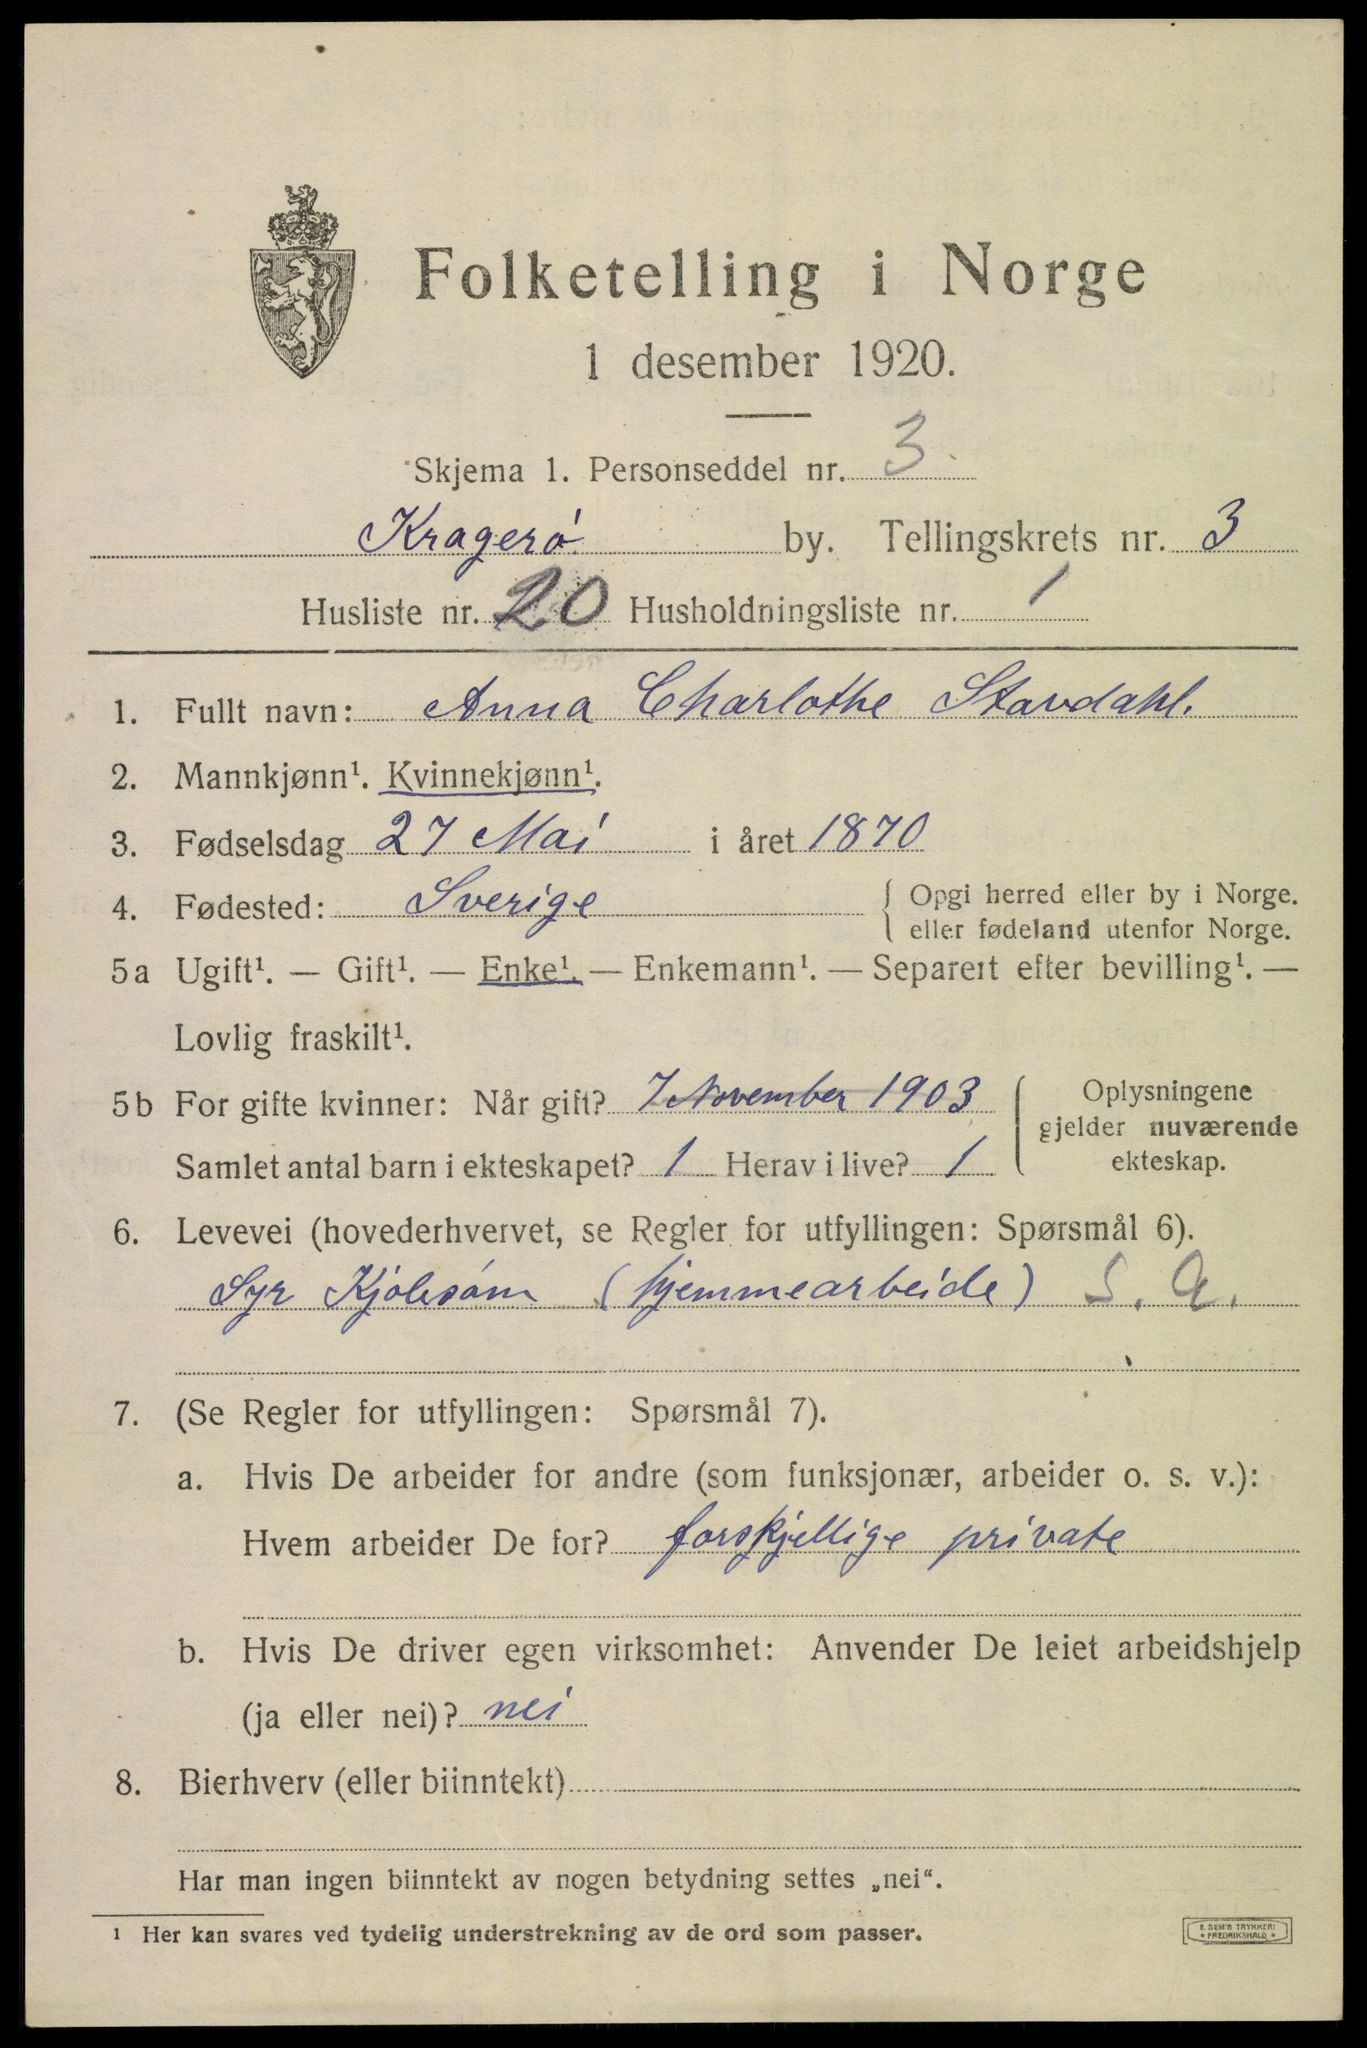 Folketelling i Norge
1 desember 1920.
Skjema 1. Personseddel nr. 3
Kragerø by. Tellingskrets nr. 3
Husliste nr. 20 Husholdningsliste nr. 1
1. Fullt navn: Anna Charlothe Stavdahl.
2. Mannkjønn¹. Kvinnekjønn¹.
3. Fødselsdag 27 Mai i året 1870
4. Fødested: Sverige { Opgi herred eller by i Norge.
eller fødeland utenfor Norge.
5a Ugift¹. — Gift¹. — Enke¹. — Enkemann¹. — Separert efter bevilling¹. —
Lovlig fraskilt¹.
5b For gifte kvinner: Når gift? 7 November 1903
Samlet antal barn i ekteskapet? 1 Herav i live? 1
Oplysningene
gjelder nuværende
ekteskap.
6. Levevei (hovederhvervet, se Regler for utfyllingen: Spørsmål 6).
Syr Kjolesøm (hjemmearbeide) S. A.
7. (Se Regler for utfyllingen: Spørsmål 7).
a. Hvis De arbeider for andre (som funksjonær, arbeider o. s. v.):
Hvem arbeider De for? forskjellige private
b. Hvis De driver egen virksomhet: Anvender De leiet arbeidshjelp
(ja eller nei)? nei
8. Bierhverv (eller biinntekt)
Har man ingen biinntekt av nogen betydning settes „nei“.
¹ Her kan svares ved tydelig understrekning av de ord som passer.
E. SEM'S TRYKKERI
FREDRIKSHALD